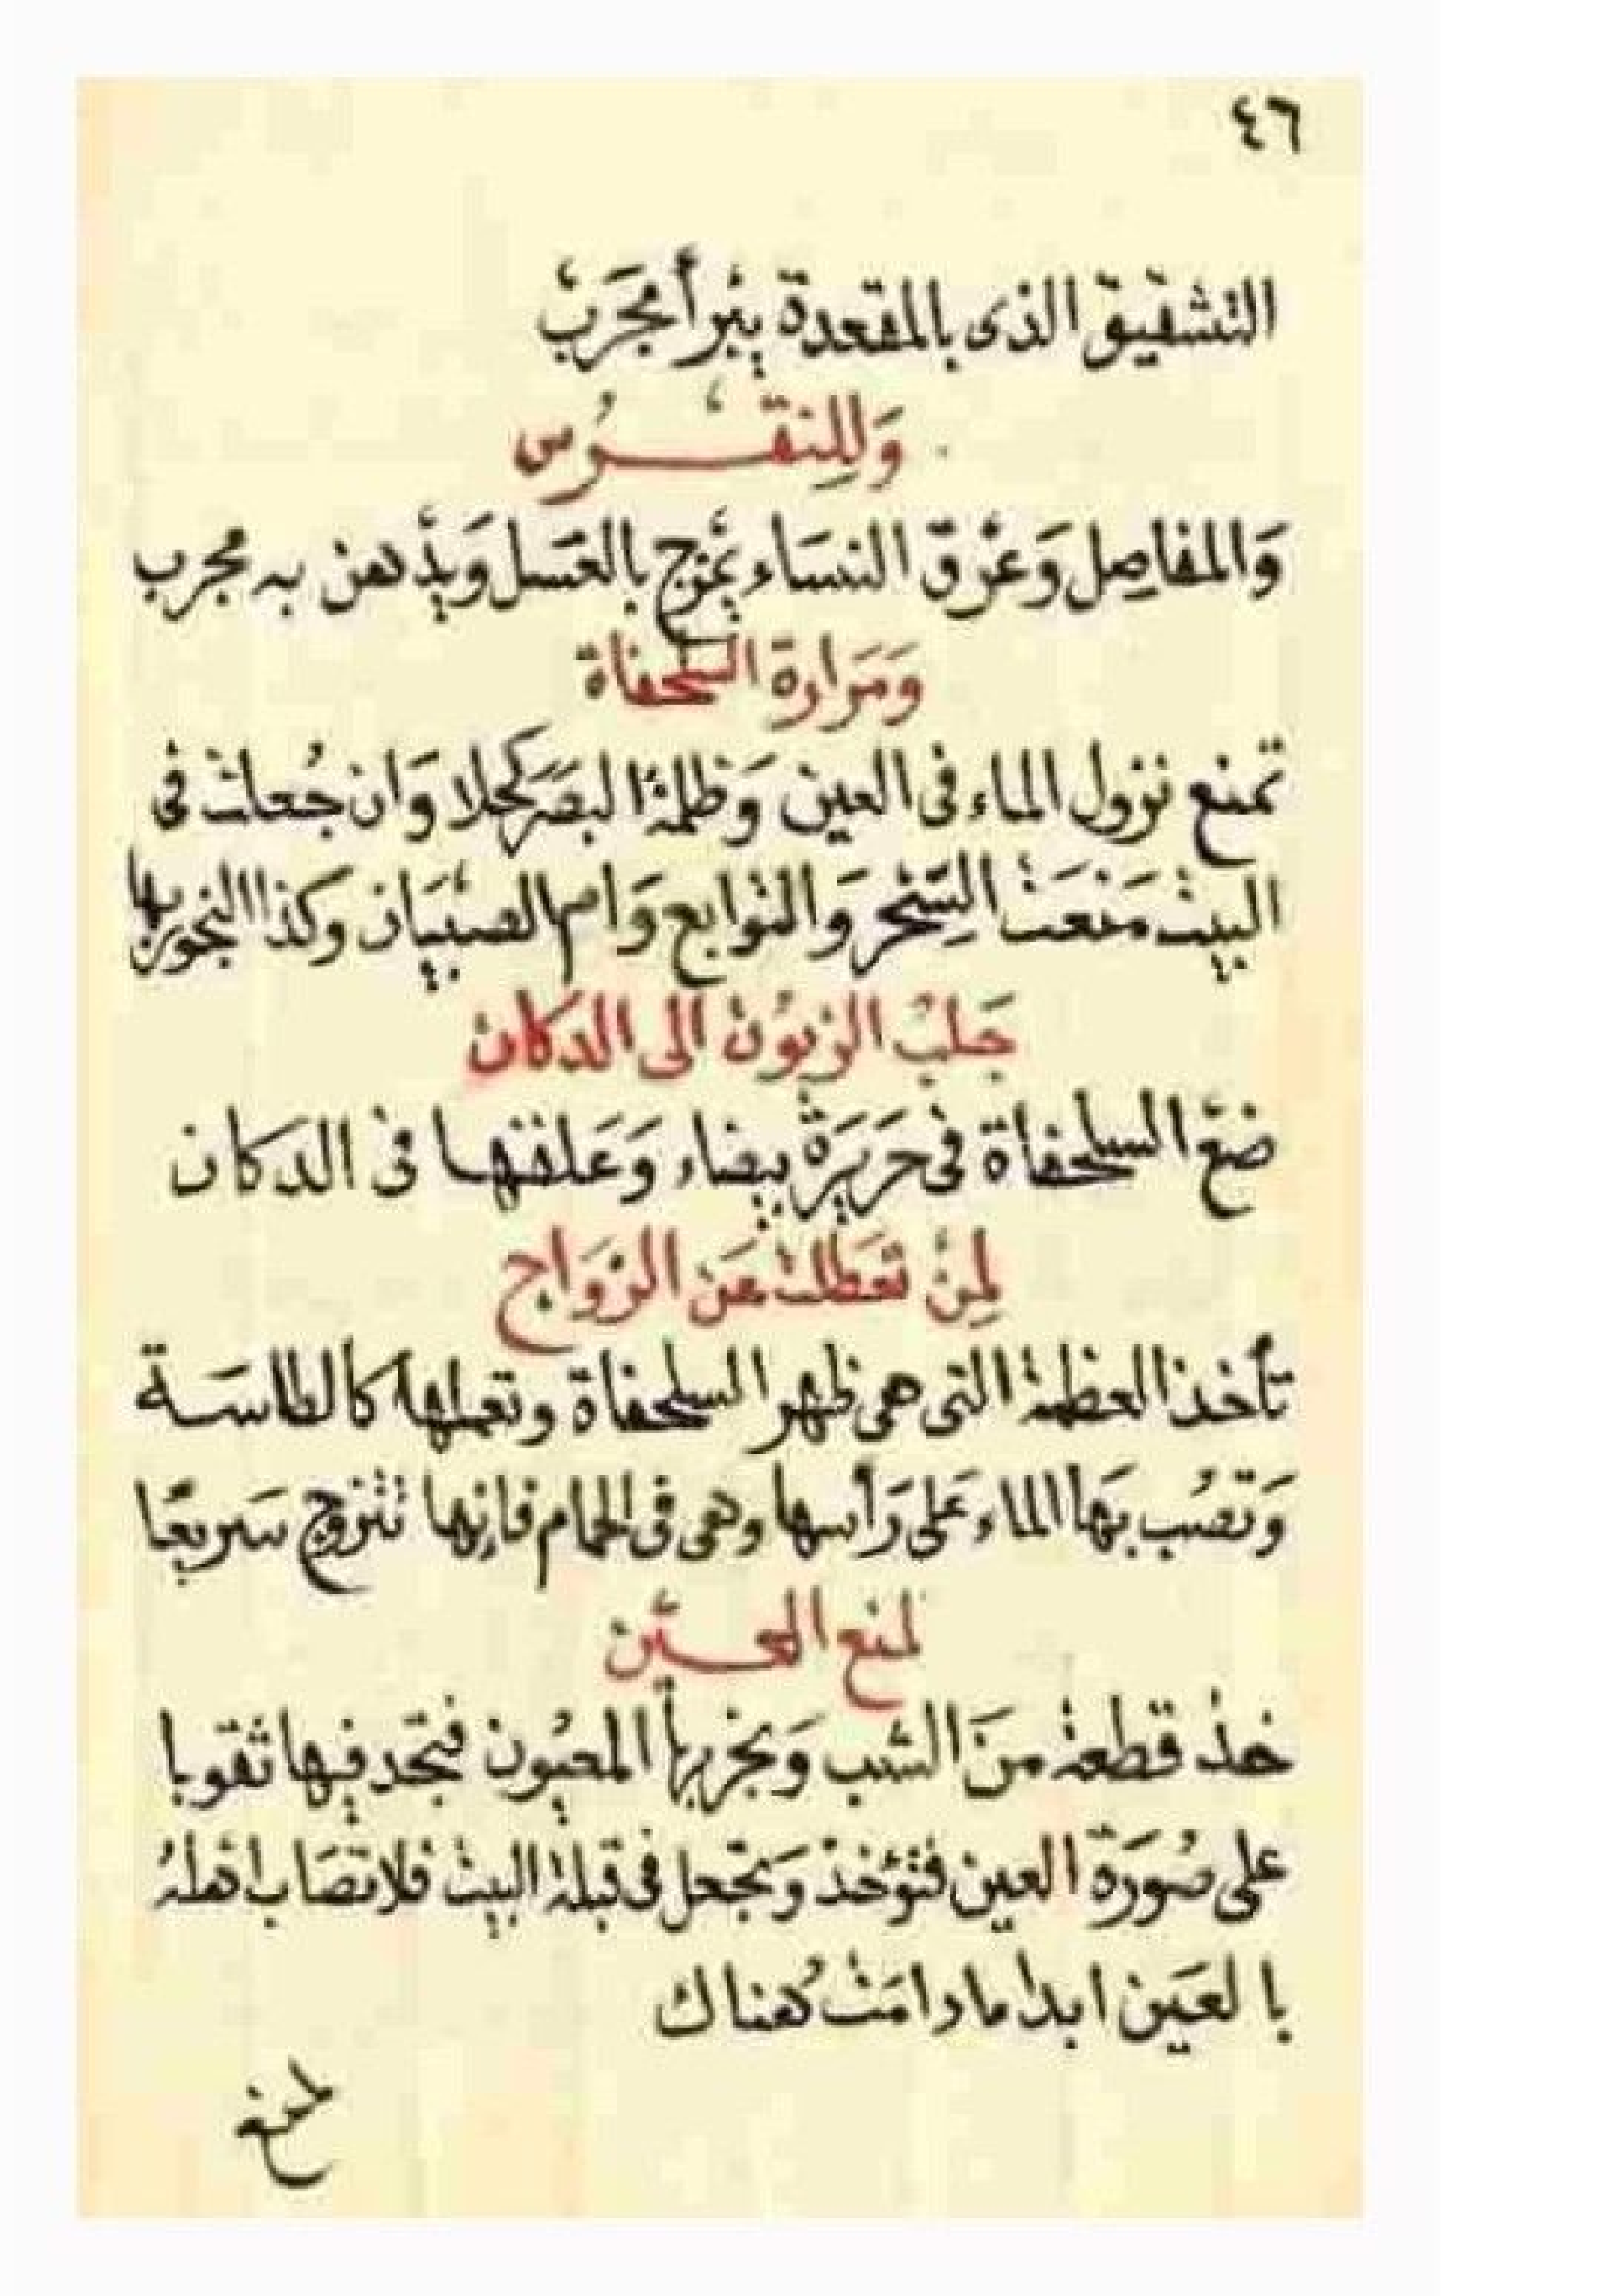 ٤٦
التشقيق الذى بالمقعدة يبرأ مجرب
وللنقرس
والمفاصل وعرق النساء يمزج بالعسل ويدهن به مجرب
ومرارة السلحفاة
تمنع نزول الماء فى العين وظلمة البصر كحلا وان جعلت فى
البيت منعت السحر والتوابع وام الصبيان وكذا البخور بها
جلب الزبون الى الدكان
ضع السلحفاة فى حريرة بيضاء وعلقها فى الدكان
لمن تعطلت عن الزواج
تأخذ العظمة التى هى ظهر السلحفاة وتعملها كالطاسة
وتصب بها الماء على رأسها وهى فى الحمام فإنها تتزوج سريعا
لمنع العين
خذ قطعة من الشب وبخر بها المعيون فتجد فيها ثقوبا
على صورة العين فتؤخذ وتجعل فى قبلة البيت فلا تصاب اهله
بالعين ابدا ما دامت هناك
لمنع